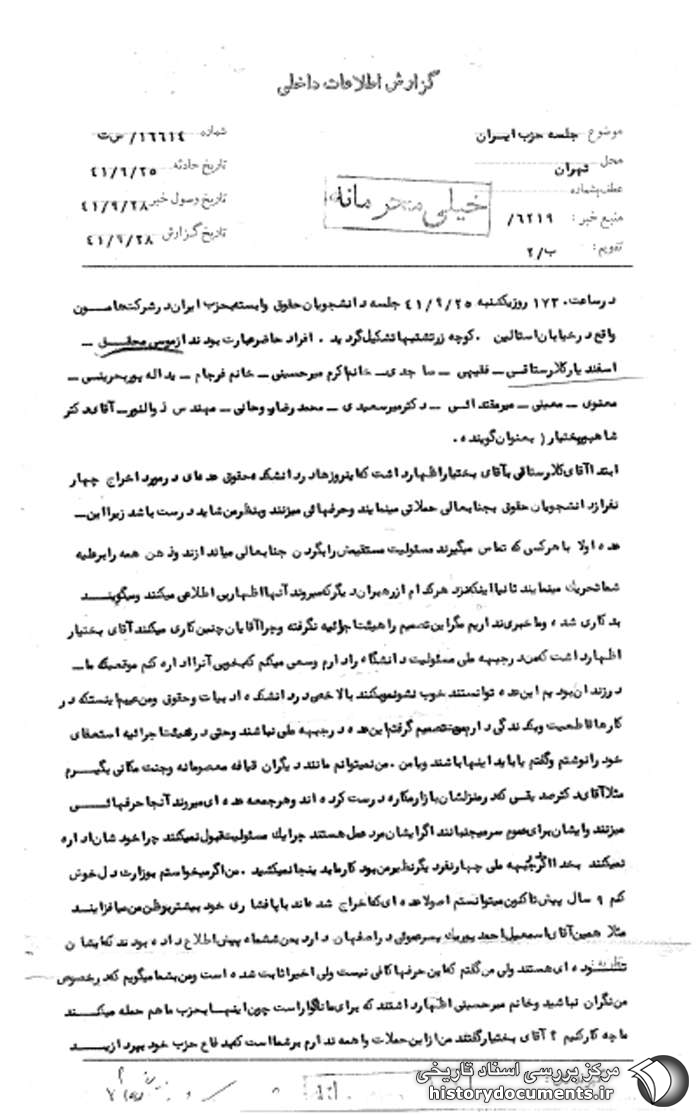 گزارش اطلاعات داخلی
موضوع جلسه حزب ایران
شماره ۱۶۶۱۴/ س ت
محل تهران
تاریخ حادثه ۴۱/۹/۲۵
عطف بشماره
تاریخ وصول خبر ۴۱/۹/۲۸
منبع خبر: ۶۲۱۹/
تاریخ گزارش ۴۱/۹/۲۸
تقویم: ب/۲
خیلی محرمانه
در ساعت ۱۷۳۰ روز یکشنبه ۴۱/۹/۲۵ جلسه دانشجویان حقوق وابسته بحزب ایران در شرکت هامون
واقع در خیابان استالین . کوچه زرتشتیها تشکیل گردید . افراد حاضر عبارت بودند از موسی محقق –
اسفندیار کلارستاقی – فقیهی – ساجدی – خانم اکرم میرحسینی – خانم فرجام – یداله پوربحرینی –
معنوی – معینی – میرمقتدائی – دکتر میرسعیدی – محمدرضا روحانی – مهندس ذوالنور – آقای دکتر
شاهپور بختیار ( بعنوان گوینده .
ابتدا آقای کلارستاقی بآقای بختیار اظهار داشت که اینروزها در دانشکده حقوق عده ای در مورد اخراج چهار
نفر از دانشجویان حقوق بجنابعالی حملاتی مینمایند و حرفهائی میزنند و بنظر من شاید درست باشد زیرا این –
عده اولا با هر کسی که تماس میگیرند مسئولیت مستقیمش را بگردن جنابعالی میاندازند و ذهن همه را بر علیه
شما تحریک مینمایند ثانیا اینکه نزد هر کدام از رهبران دیگر که میروند آنها اظهار بی اطلاعی میکنند و میگویند
بد کاری شده و ما خبری نداریم مگر این تصمیم را هیئت اجرائیه نگرفته و چرا آقایان چنین کاری میکنند آقای بختیار
اظهار داشت که من در جبهه ملی مسئولیت دانشگاه را دارم و سعی میکنم که بخوبی آنرا اداره کنم موقعیکه ما –
در زندان بودیم این عده توانستند خوب نشو و نمو بکنند بالاخص در دانشکده ادبیات و حقوق و من عیبم اینستکه در
کارها قاطعیت و یکدندگی دارم و تصمیم گرفتم این عده در جبهه ملی نباشند و حتی در هیئت اجرائیه استعفای
خود را نوشتم و گفتم یا باید اینها باشند و یا من . من نمیتوانم مانند دیگران قیافه معصومانه و جنت مکانی بگیرم
مثلا آقای دکتر صدیقی که در منزلشان بازار مکاره درست کرده اند و هر جمعه عده ای میروند آنجا حرفهائی
میزنند و ایشان برای عموم سر میجنبانند اگر ایشان مرد عمل هستند چرا یک مسئولیت قبول نمیکنند چرا خودشان اداره
نمیکنند بخدا اگر جبهه ملی چهار نفر دیگر نظیر من بود کار ما بدینجا نمیکشید . من اگر میخواستم بوزارت دل خوش
کنم ۹ سال پیش تا کنون میتوانستم اصولا عده ای که اخراج شده اند با پافشاری خود بیشتر بوظن من میافزایند
مثلا همین آقای اسمعیل احمدپور یک پسر عموئی در اصفهان دارد بمن ششماه پیش اطلاع داده بودند که ایشان
توده ای هستند ولی من گفتم که این حرفها کافی نیست ولی اخیرا ثابت شده است و من بشما میگویم که در خصوص
من نگران نباشید و خانم میرحسینی اظهار داشتند که برای ما ناگوار است چون اینها بحزب ما هم حمله میکنند
ما چه کار کنیم ؟ آقای بختیار گفتند من از این حملات واهمه ندارم بر شما است که بدفاع حزب خود بپردازید
مرکز بررسی اسناد تاریخی
historydocuments.ir